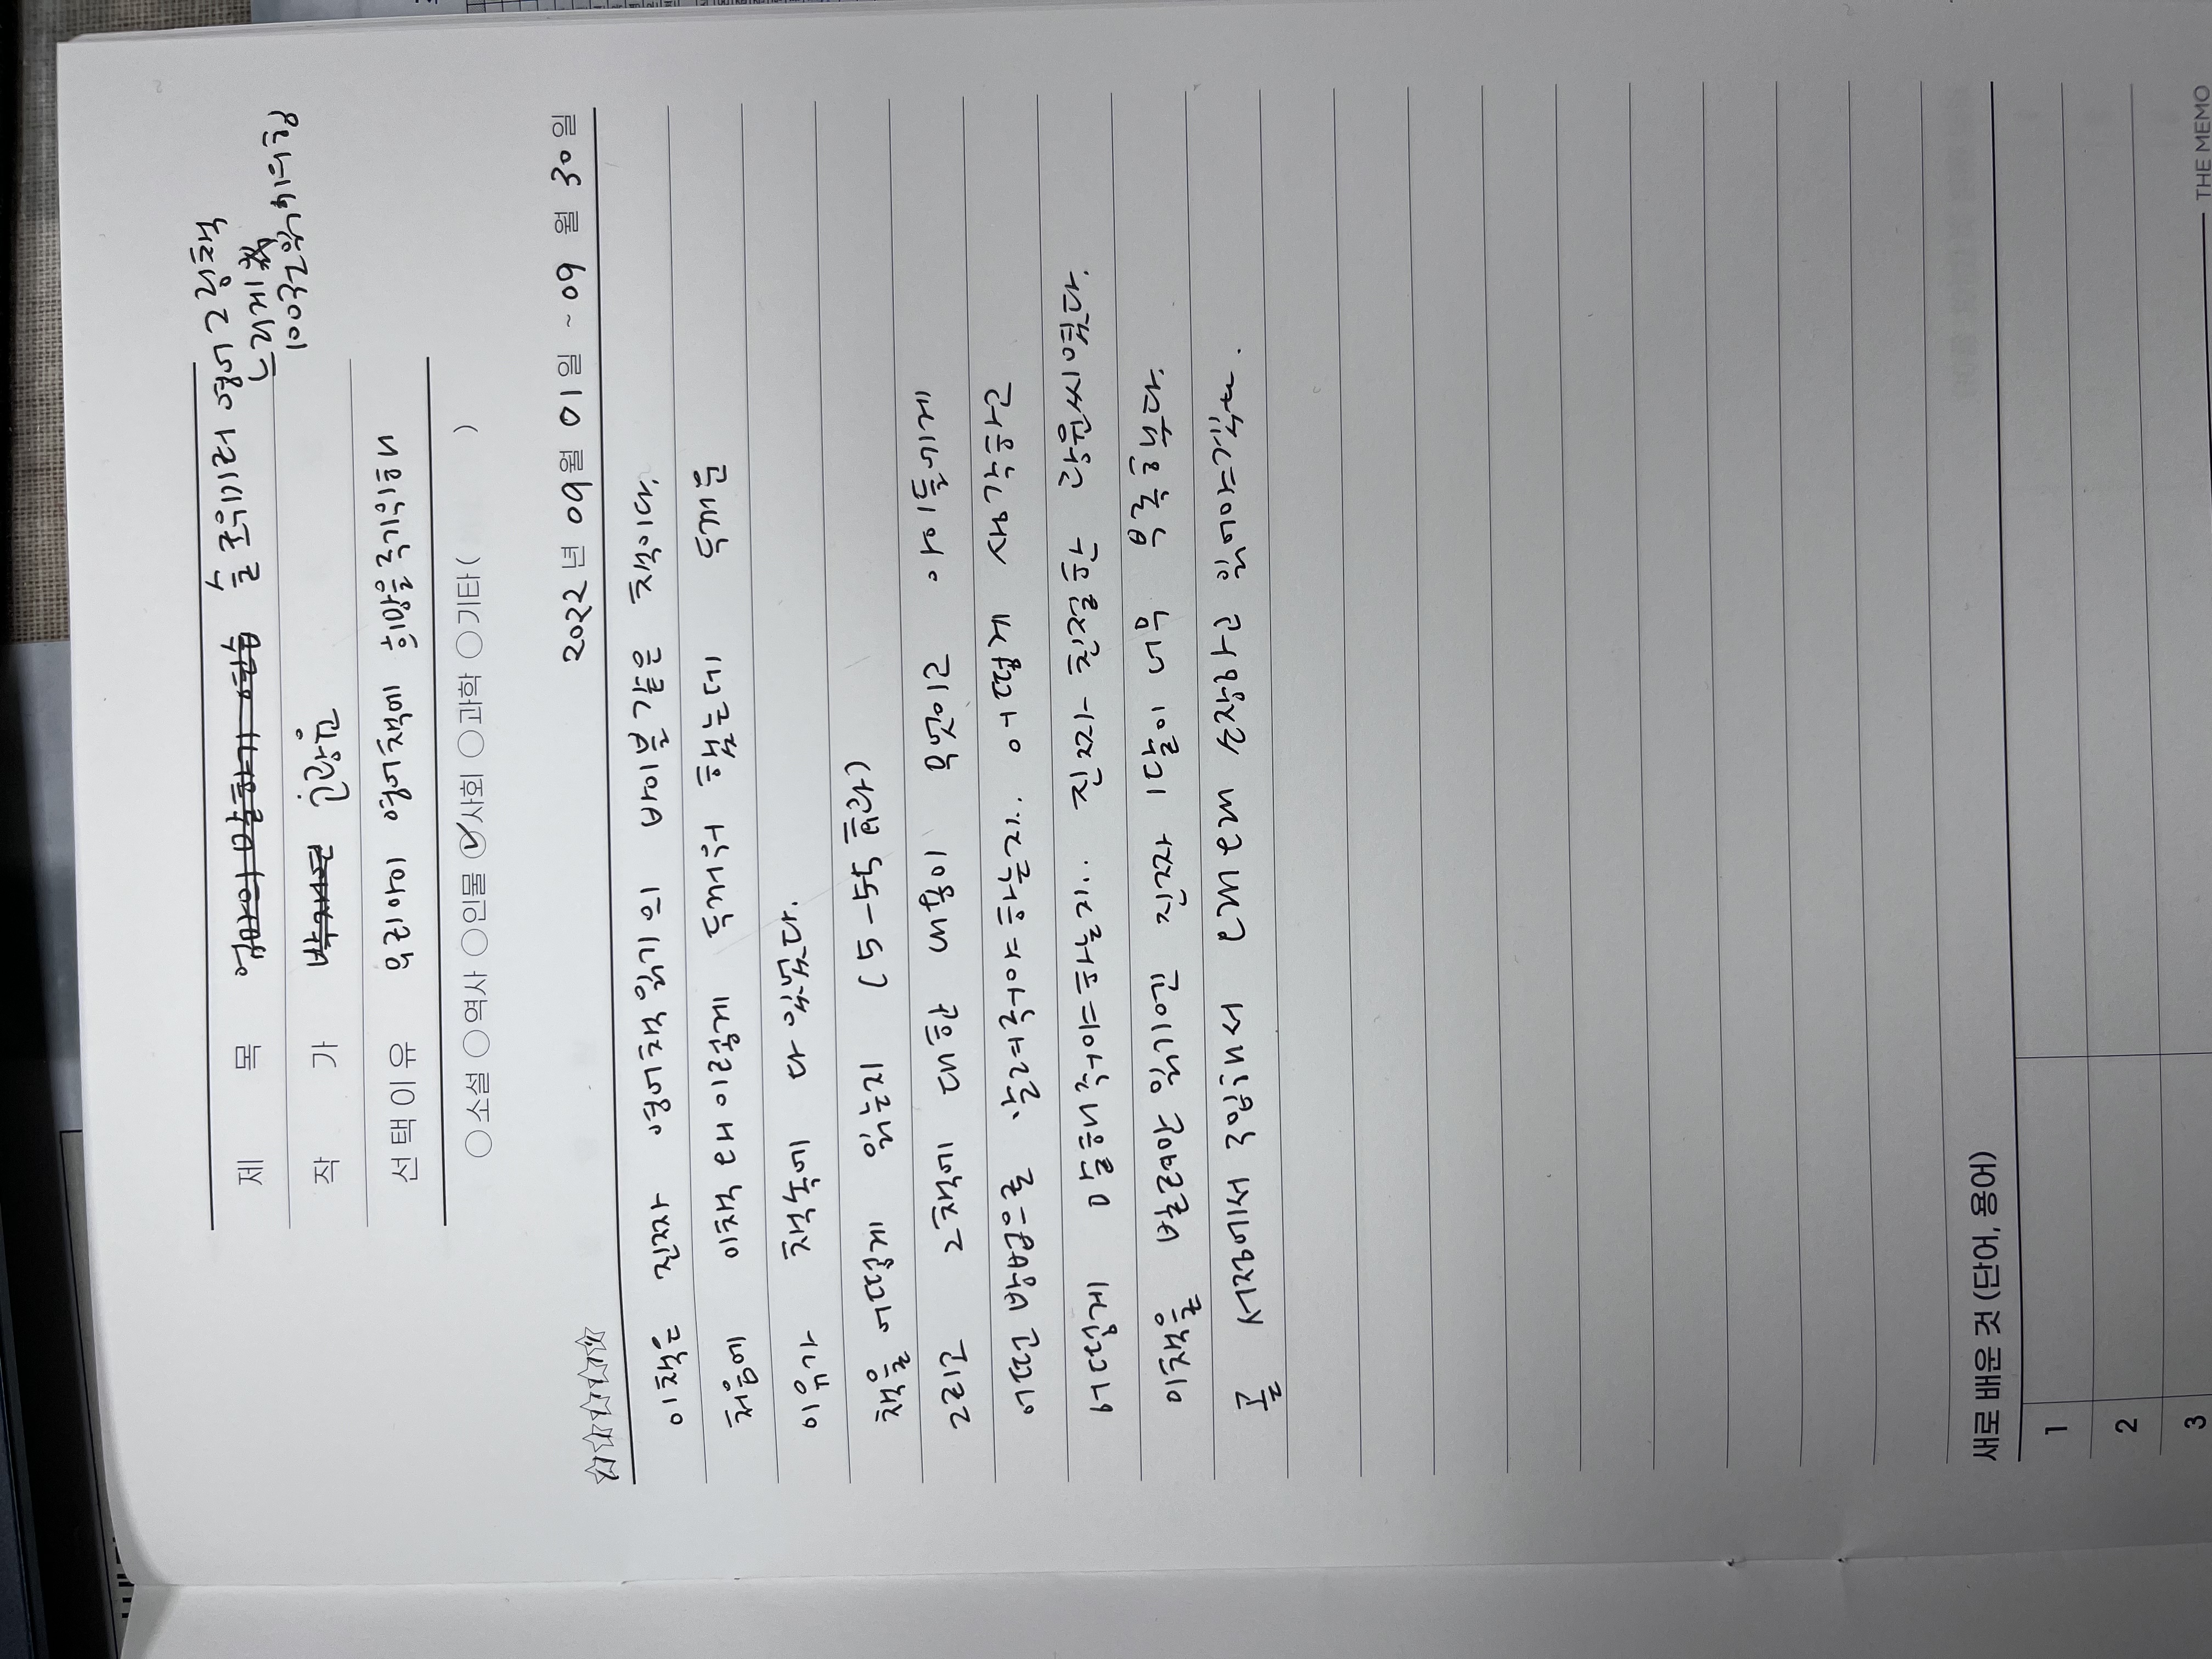 제 목 엄마의 말하기 연습 슬로우미러 영어그림책
느리게
100권읽기의 힘
작 가 박재연 고광윤
선택이유 우리아이 영어책에 희망을주기위해
소설 역사 인물 사회 과학 기타 ( )
2022 년 09 월 01 일 ~ 09 월 30 일
이책은 진짜 영어책읽기의 바이블같은 책이다.
처음에 이책 왜이렇게 두꺼워 했는데 두꺼운
이유가 책속에 다 있었다.
책을 어떻게 읽는지 (5-55 효과)
그리고 그책에 대한 내용이 무엇이고 아이들에게
어떤 방법으로 알려줘야하는지.. 어떻게 생각하고
어떻게 말해줘야하는지.. 진짜 친절한 광윤씨였다.
이책을 빌려만 읽기엔 진짜 1달이 너무 부족했다.
곧 서점에서 구입해서 오래오래 소장하고 읽어야겠다.
새로 배운 것 (단어, 용어)
1
2
3
THE MEMO